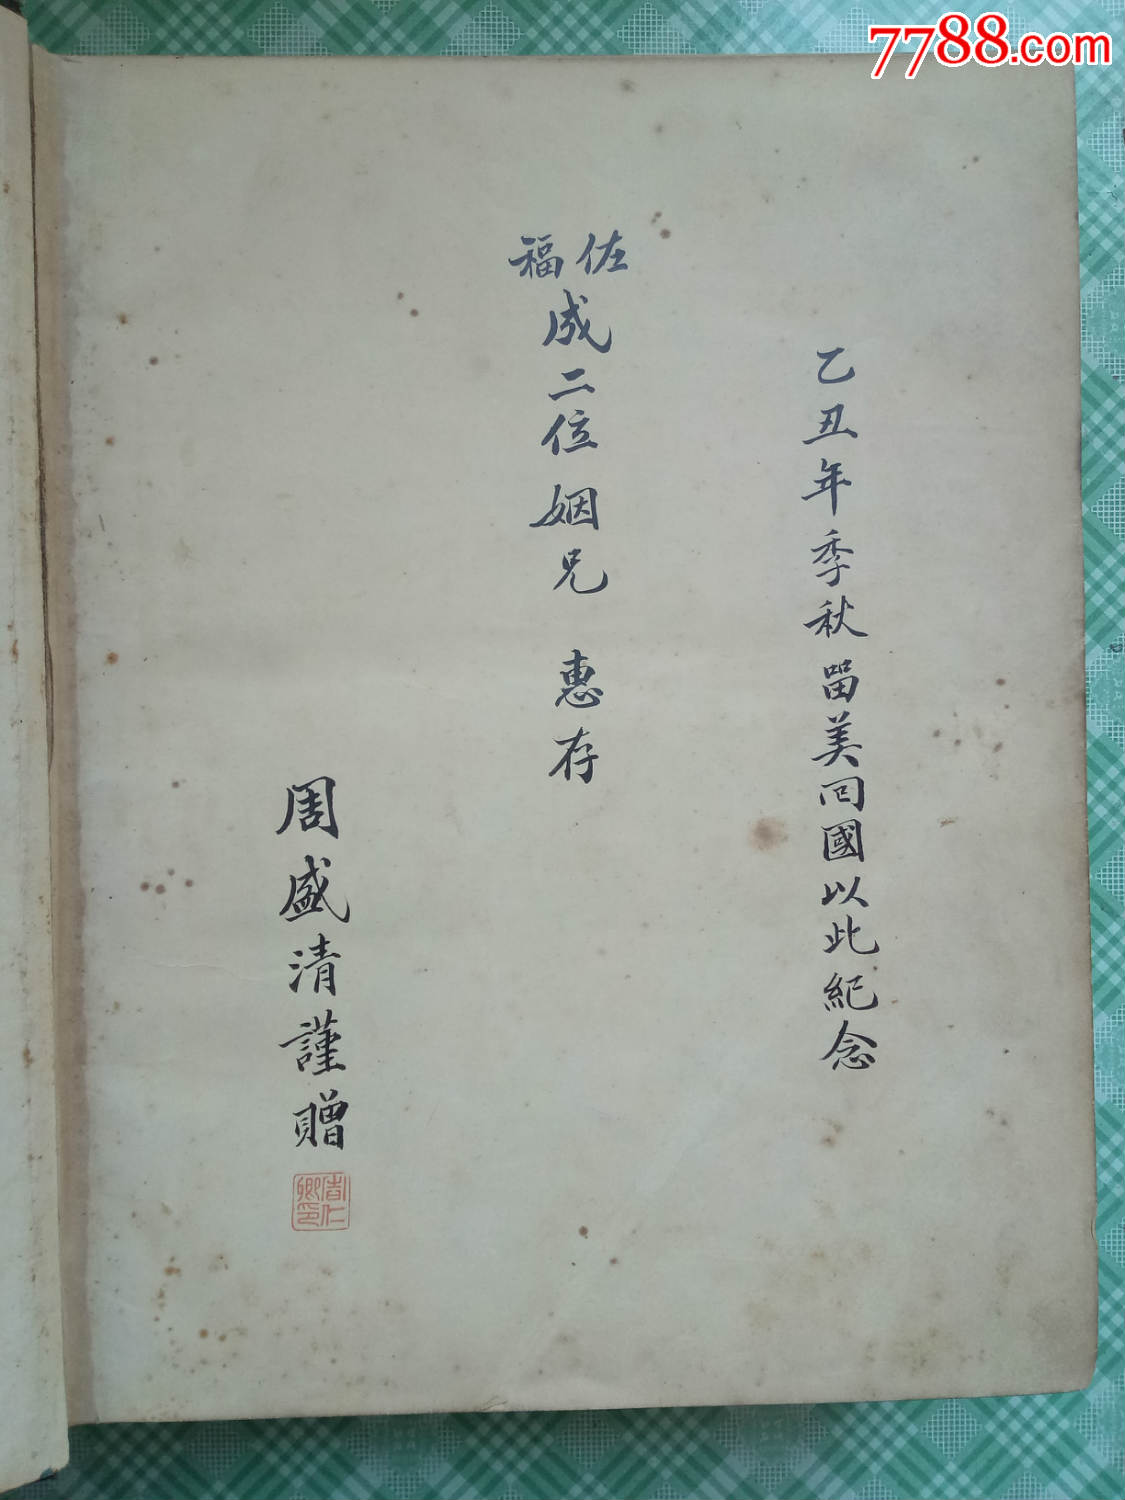 7788.com
乙丑年季秋畱美回國以此紀念
佐福成二位姻兄 惠存
周盛清謹贈
周仁卿印